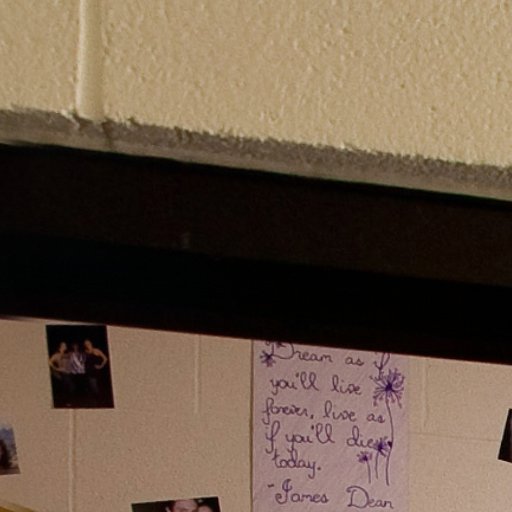 "Dream as if
you'll live
forever, live as
if you'll die
today.
-James Dean